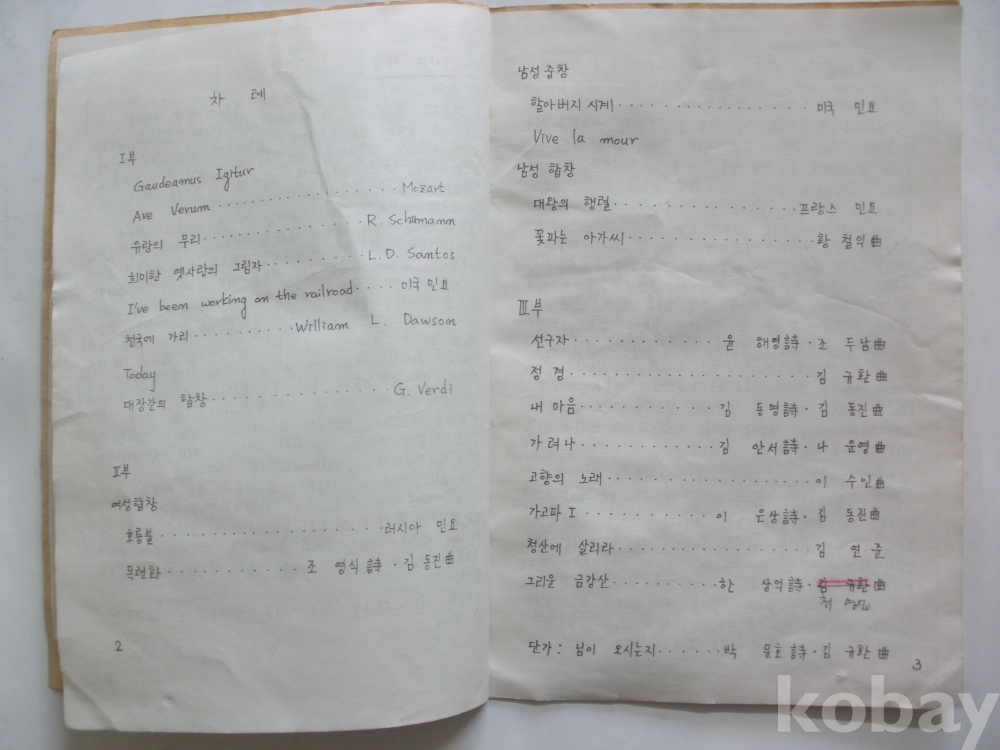 차 례
I부
Gaudeamus Igitur
Ave Verum · · · · · · · · · · · · · · · Mozart
유랑의 무리 · · · · · · · · · · · · · R. Schumann
희미한 옛사랑의 그림자 · · · · · · · · L.D. Santos
I've been working on the railroad · · · · 미국 민요
천국에 가리 · · · · · · · · · William L. Dawson
Today
대장간의 합창 · · · · · · · · · · · · · · G. Verdi
II부
여성합창
호롱불 · · · · · · · · · · · · · · · · · 러시아 민요
목련화 · · · · · · · · · · · · 조 영식詩 · 김 동진曲
2
남성중창
할아버지 시계 · · · · · · · · · · · · · · · 미국 민요
Vive la mour
남성 합창
대왕의 행렬 · · · · · · · · · · · · · · 프랑스 민요
꽃파는 아가씨 · · · · · · · · · · · · · · 황 철익曲
III부
선구자 · · · · · · · · · · · · · 윤 해영詩 · 조 두남曲
정 경 · · · · · · · · · · · · · · · · · · · 김 규환曲
내 마음 · · · · · · · · · · · · 김 동명詩 · 김 동진曲
가려나 · · · · · · · · · · · · 김 안서詩 · 나 운영曲
고향의 노래 · · · · · · · · · · · · · · · · 이 수인曲
가고파 I · · · · · · · · · · · · 이 은상詩 · 김 동진曲
청산에 살리라 · · · · · · · · · · · · · · · 김 연 준
그리운 금강산 · · · · · · · · · · 한 상억詩 · 김 규환曲
최 영섭
단가 : 님이 오시는지 · · · · · · 박 문호詩 · 김 규환曲
3
kobay